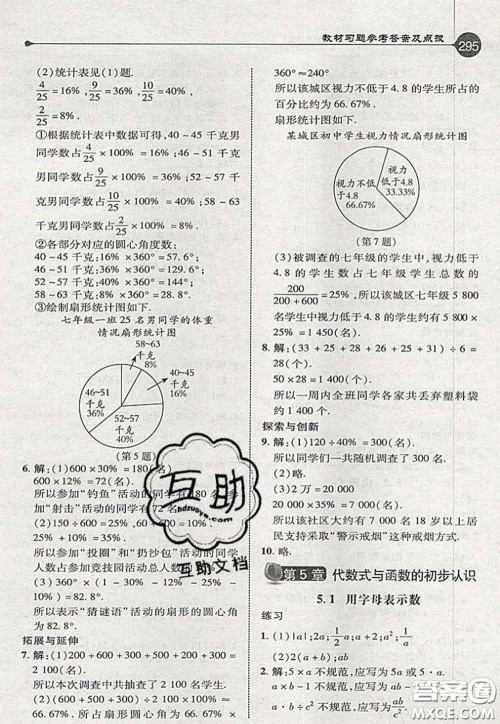 教材习题参考答案及点拨
295
(2)统计表见(1)题.
4/25 = 16%; 9/25 = 36%; 10/25 = 40%;
2/25 = 8%.
①根据统计表中数据可得,40～45千克男
同学数占4/25×100% = 16%;46～51千克
男同学数占9/25×100% = 36%;52～57千
克男同学数占10/25×100% = 40%;58～63千
克男同学数占2/25×100% = 8%.
②各部分对应的圆心角度数:
40～45千克:16%×360° = 57.6°.
46～51千克:36%×360° = 129.6°.
52～57千克:40%×360° = 144°.
58～63千克:8%×360° = 28.8°.
③绘制扇形统计图如下:
七年级一班25名男同学的体重
情况扇形统计图
58～63
千克
8%
40～45
千克
16%
46～51
千克
36%
52～57
千克
40%
(第5题)
6. 解:(1)600×30% = 180(名)
所以参加“钓鱼”活动的同学有180名,参
加“射击”活动的同学有
(2)150÷600 = 25%,
25% =
所以参加“投圈”和“扔沙包”活动的同学
人数占参加娱乐活动总人数的
(3)60÷600×360° = 36°.
所以表示“猜谜语”活动的扇形的圆心角
度数为36°.
拓展与延伸
7. 解:(1)200+600+300+500+200 =
1 800(名).
所以本次调查中共抽查了1 800名学生.
(2)(600+300+300)÷1 800×100% ≈
66.67%. 所以扇形的圆心角度数为66.67%×
360°≈240°
所以该城区视力低于4.8的学生所占的
百分比约为66.67%.
扇形统计图如下:
某城区初中学生视力情况扇形统计图
视力不低
于4.8
33.33%
视力低
于4.8
66.67%
(第7题)
(3)被调查的七年级的学生中,视力低于
4.8的学生数占七年级学生总数的
200/(200+600) = 25%,所以该城区七年级5 800
名学生中视力低于4.8的学生约有5 800×
25% = 1 450(名).
8. 解:(33+25+28+26+25+31)÷6 =
28(个),
50×28 = 1 400(个).
所以一周内全班同学各家共丢弃塑料袋
约1 400个.
探索与创新
9. 解:(1)120÷40% = 300(名).
所以同学们一共随机调查了300名.
(2)略.
所以该社区大约有7 000名18岁以上居
民支持采取“警示戒烟”这种戒烟方式.
10. 略.
第5章 代数式与函数的初步认识
5.1 用字母表示数
练习
2. 解:a·5不规范,应写为5a或5·a.
互助
bdzuoye.com
互助文档
答案圈
MXQE.COM